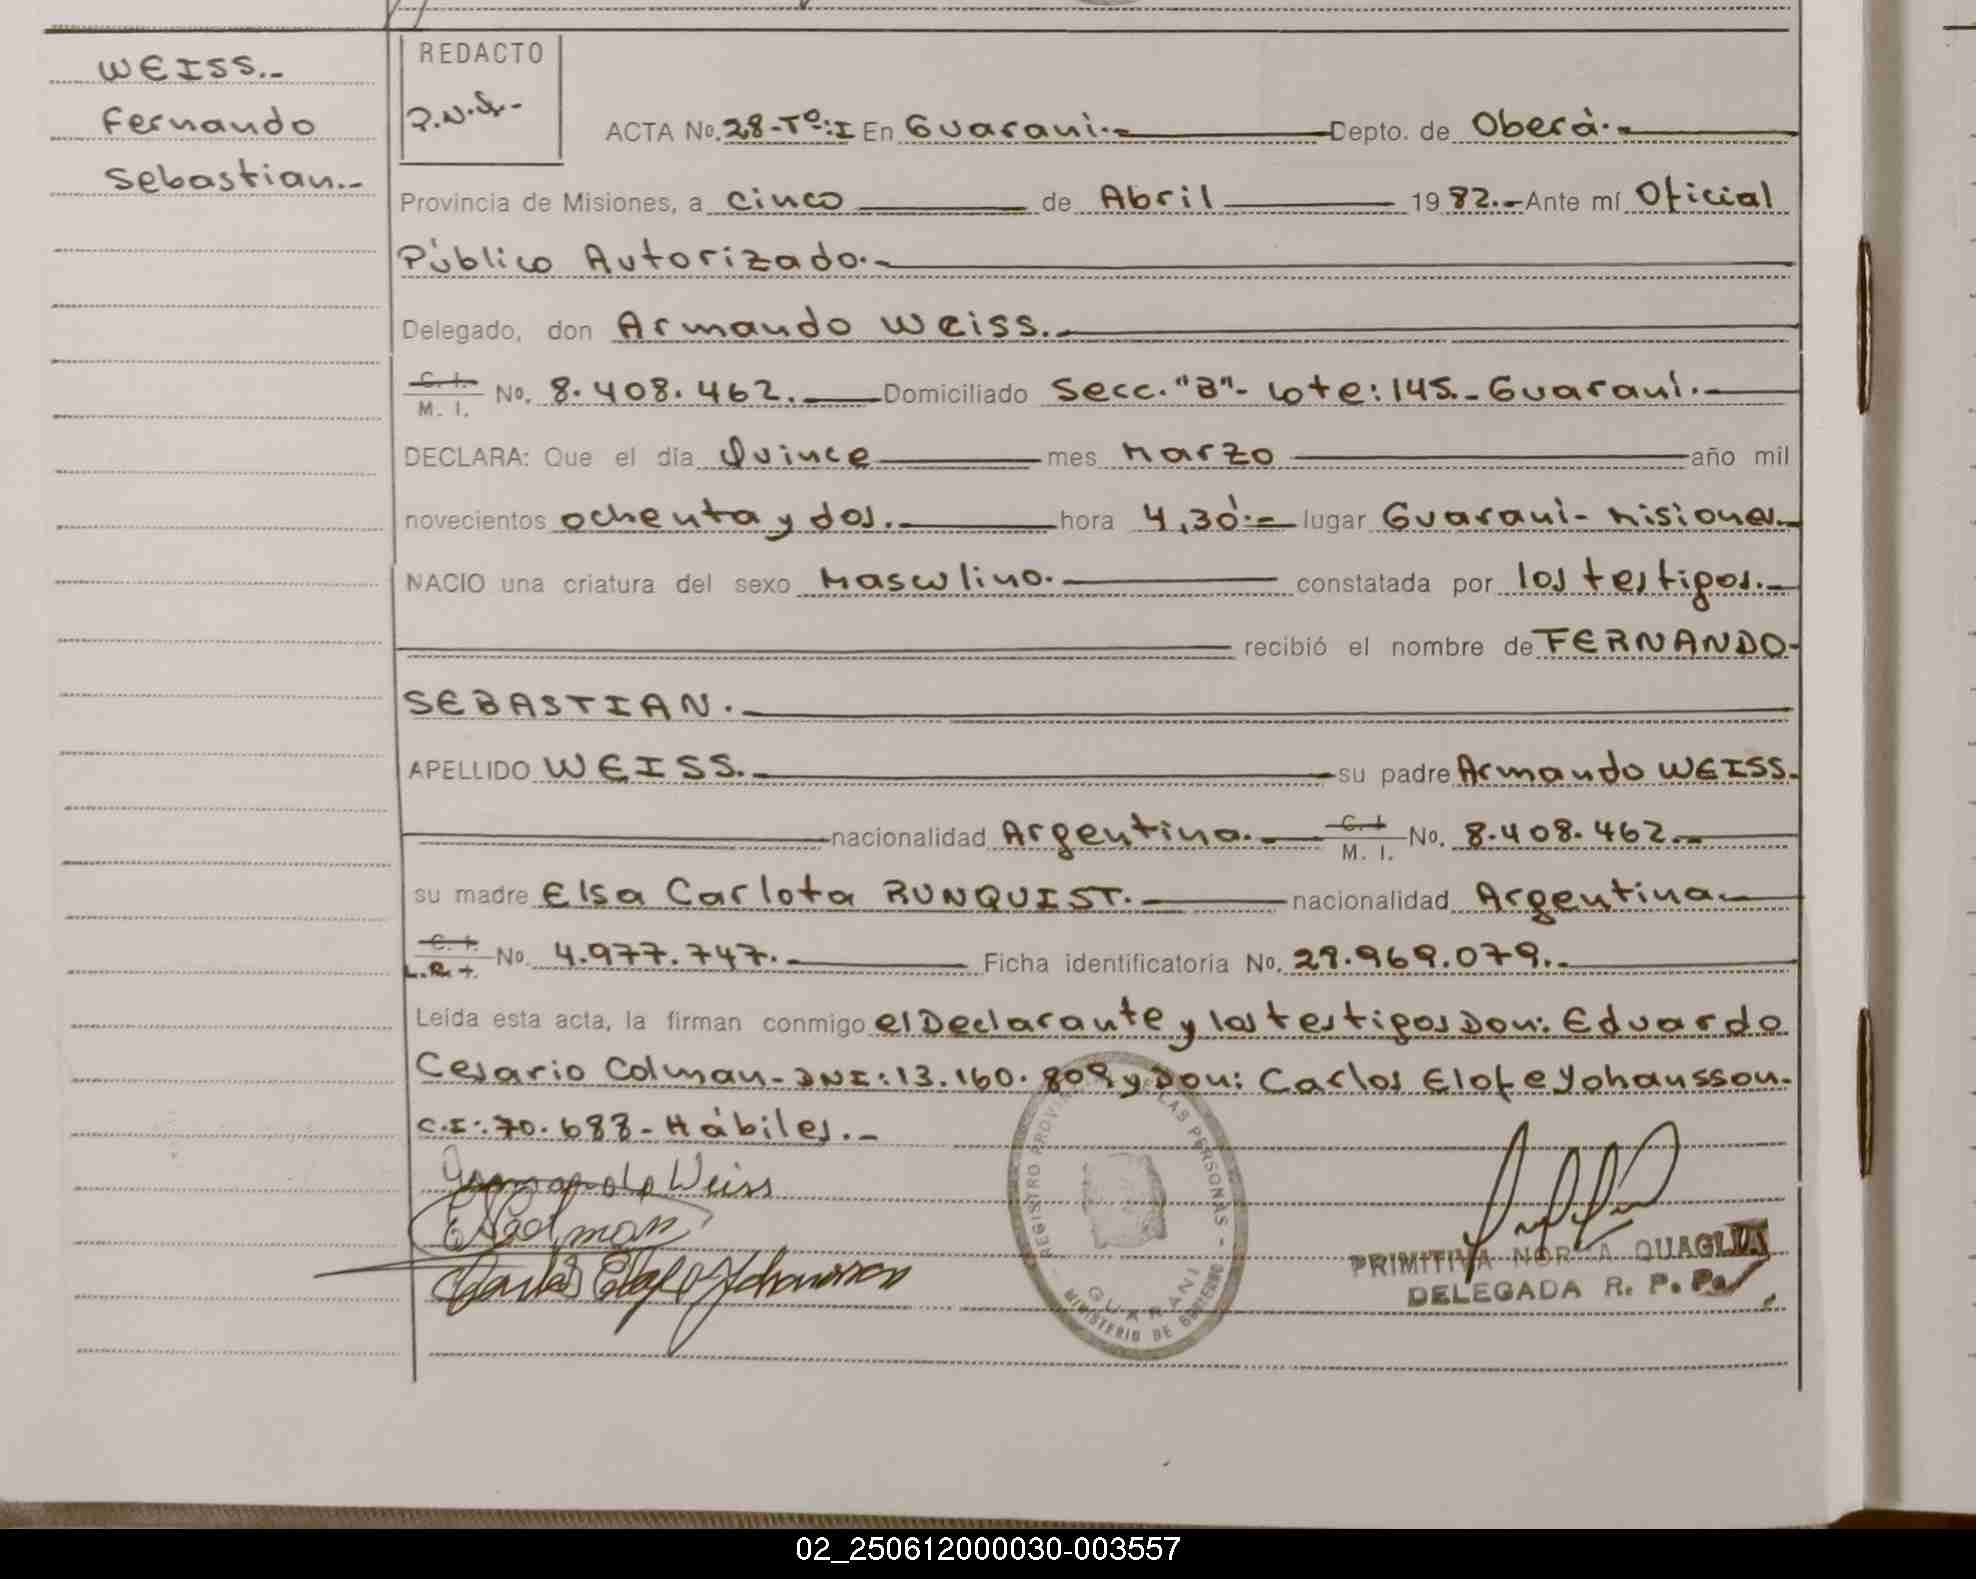 WEISS.-
Fernando
Sebastian.-
REDACTO
P.N.Q.-
ACTA No. 28-Tº:I En Guaraní.- Depto. de Oberá.-
Provincia de Misiones, a cinco de Abril 1982.- Ante mí Oficial
Público Autorizado.-
Delegado, don Armando Weiss.-
C. I. / M. I. No. 8.408.462.- Domiciliado Secc."B"- Lote:145.- Guaraní.-
DECLARA: Que el día Quince mes Marzo año mil
novecientos ochenta y dos.- hora 4,30.- lugar Guaraní- Misiones.-
NACIO una criatura del sexo Masculino.- constatada por los testigos.-
recibió el nombre de FERNANDO-
SEBASTIAN.-
APELLIDO WEISS.- su padre Armando WEISS.-
nacionalidad Argentina.- C. I. / M. I. No. 8.408.462.-
su madre Elsa Carlota RUNQUIST.- nacionalidad Argentina.-
C. I. No. 4.977.747.- Ficha identificatoria No. 29.969.079.-
Leída esta acta, la firman conmigo el Declarante y los testigos Don: Eduardo
Cesario Colman- DNI:13.160.809 y Don: Carlos Elofe Yohansson-
C.I:.70.688- Hábiles.-
Weiss
REGISTRO PROVIN LAS PERSONAS -
GUARANI
MINISTERIO DE GOBIERNO
PRIMITIVA NORMA QUAGLIA
DELEGADA R. P. Pe.
02_250612000030-003557